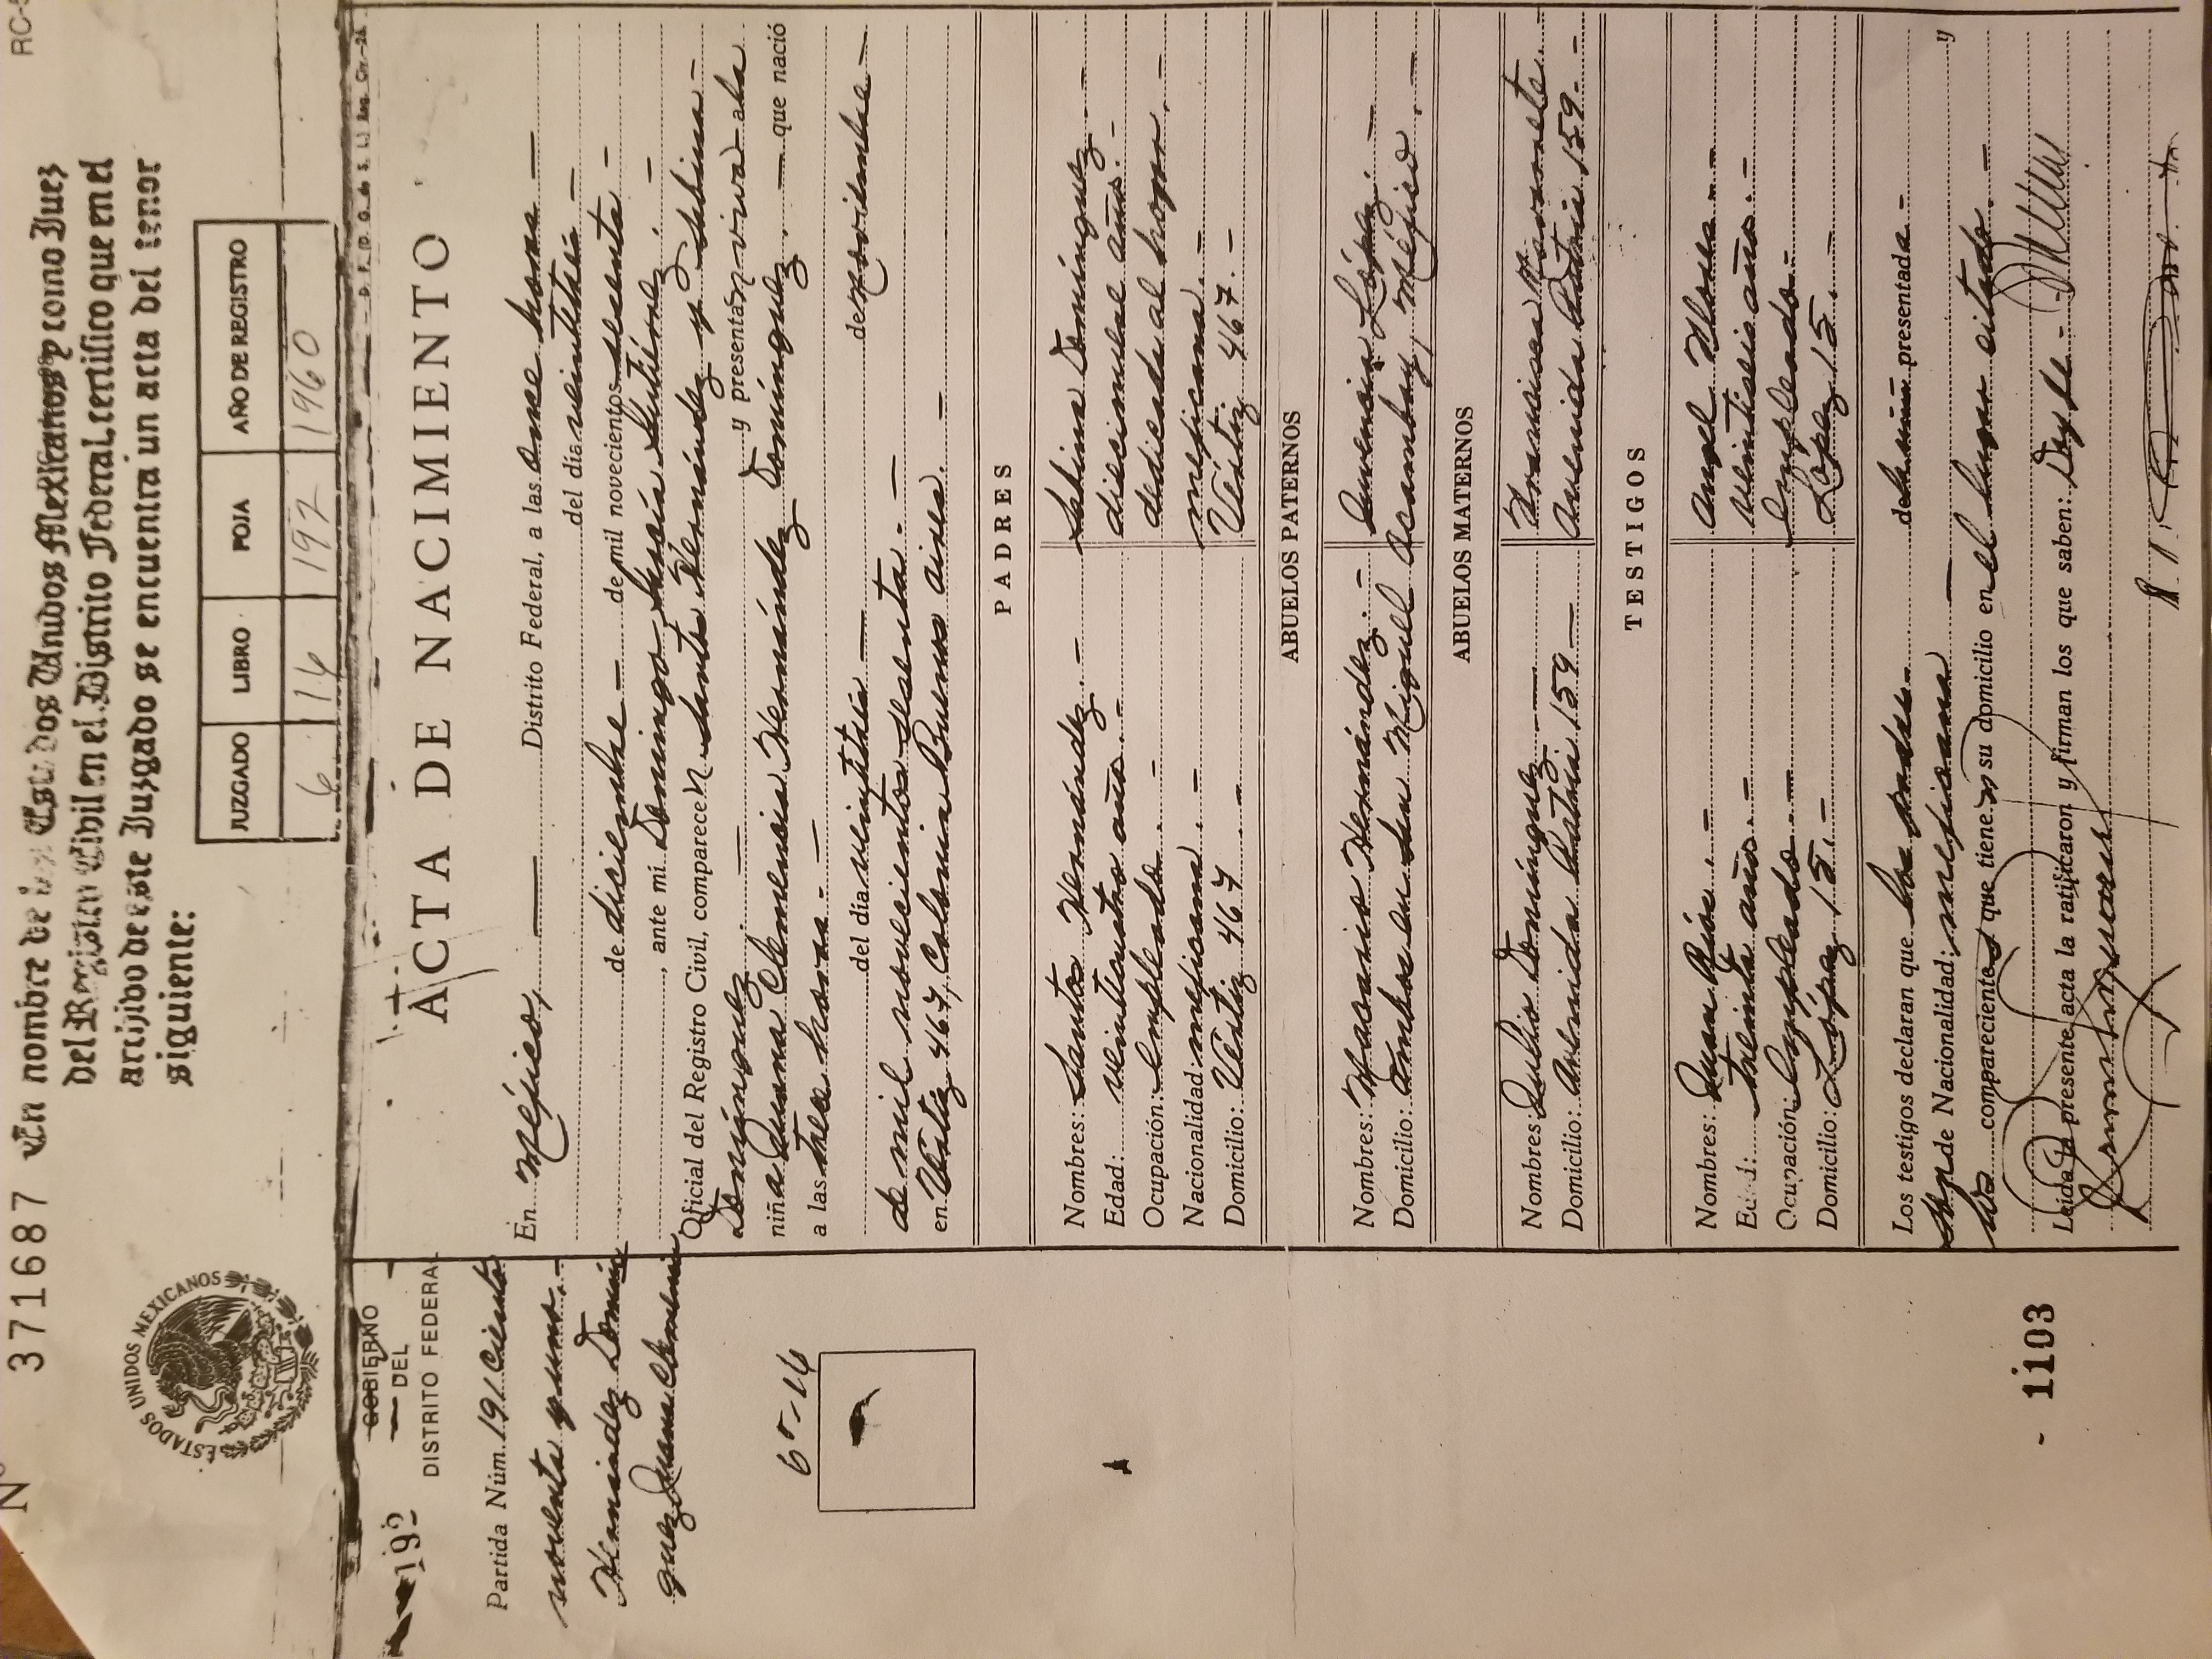 Nº 371687
RC-
En nombre de los Estados Unidos Mexicanos y como Juez
del Registro Civil en el Distrito Federal, certifico que en el
archivo de este Juzgado se encuentra un acta del tenor
siguiente:
ESTADOS UNIDOS MEXICANOS
JUZGADO LIBRO FOJA AÑO DE REGISTRO
6 14 192 1960
192
GOBIERNO
DEL
DISTRITO FEDERAL
Partida Núm. 191 Ciento
noventa y uno.-
Hernández Domín
guez Juana Clemencia
6º-14
ACTA DE NACIMIENTO
En Méjico, Distrito Federal, a las once horas
del día veintitrés
de diciembre de mil novecientos sesenta
, ante mí Domingo García Gutiérrez
Oficial del Registro Civil, comparecen Santos Hernández y Sabina
Domínguez y presentan viva a la
niña Juana Clemencia Hernández Domínguez, que nació
a las trece horas
del día veintitrés de noviembre
de mil novecientos sesenta.-
en Vértiz 467, Colonia Buenos aires.
PADRES
Nombres: Santos Hernández.- Sabina Domínguez
Edad: veinticuatro años.- diecinueve años.-
Ocupación: Empleado.- dedicada al hogar.-
Nacionalidad: mejicana.- mejicana.-
Domicilio: Vértiz 467.- Vértiz 467.-
ABUELOS PATERNOS
Nombres: Macario Hernández.- López.-
Domicilio: Ambos en San Miguel Acambay, Méjico.-
ABUELOS MATERNOS
Nombres: Julio Domínguez Francisca Navarrete.-
Domicilio: Avenida Patria 159 Avenida Patria 159.-
TESTIGOS
Nombres: Juan Ríos.- Angel
Edad: treinta años.- veintiseis años.-
Ocupación: Empleado.- Empleado.-
Domicilio: López 15.- López 15.-
Los testigos declaran que los padres de la niña presentada.- y
son de Nacionalidad: mejicana
los comparecientes que tienen su domicilio en el lugar citado.-
Leída la presente acta la ratificaron y firman los que saben: Doy fe.-
1103